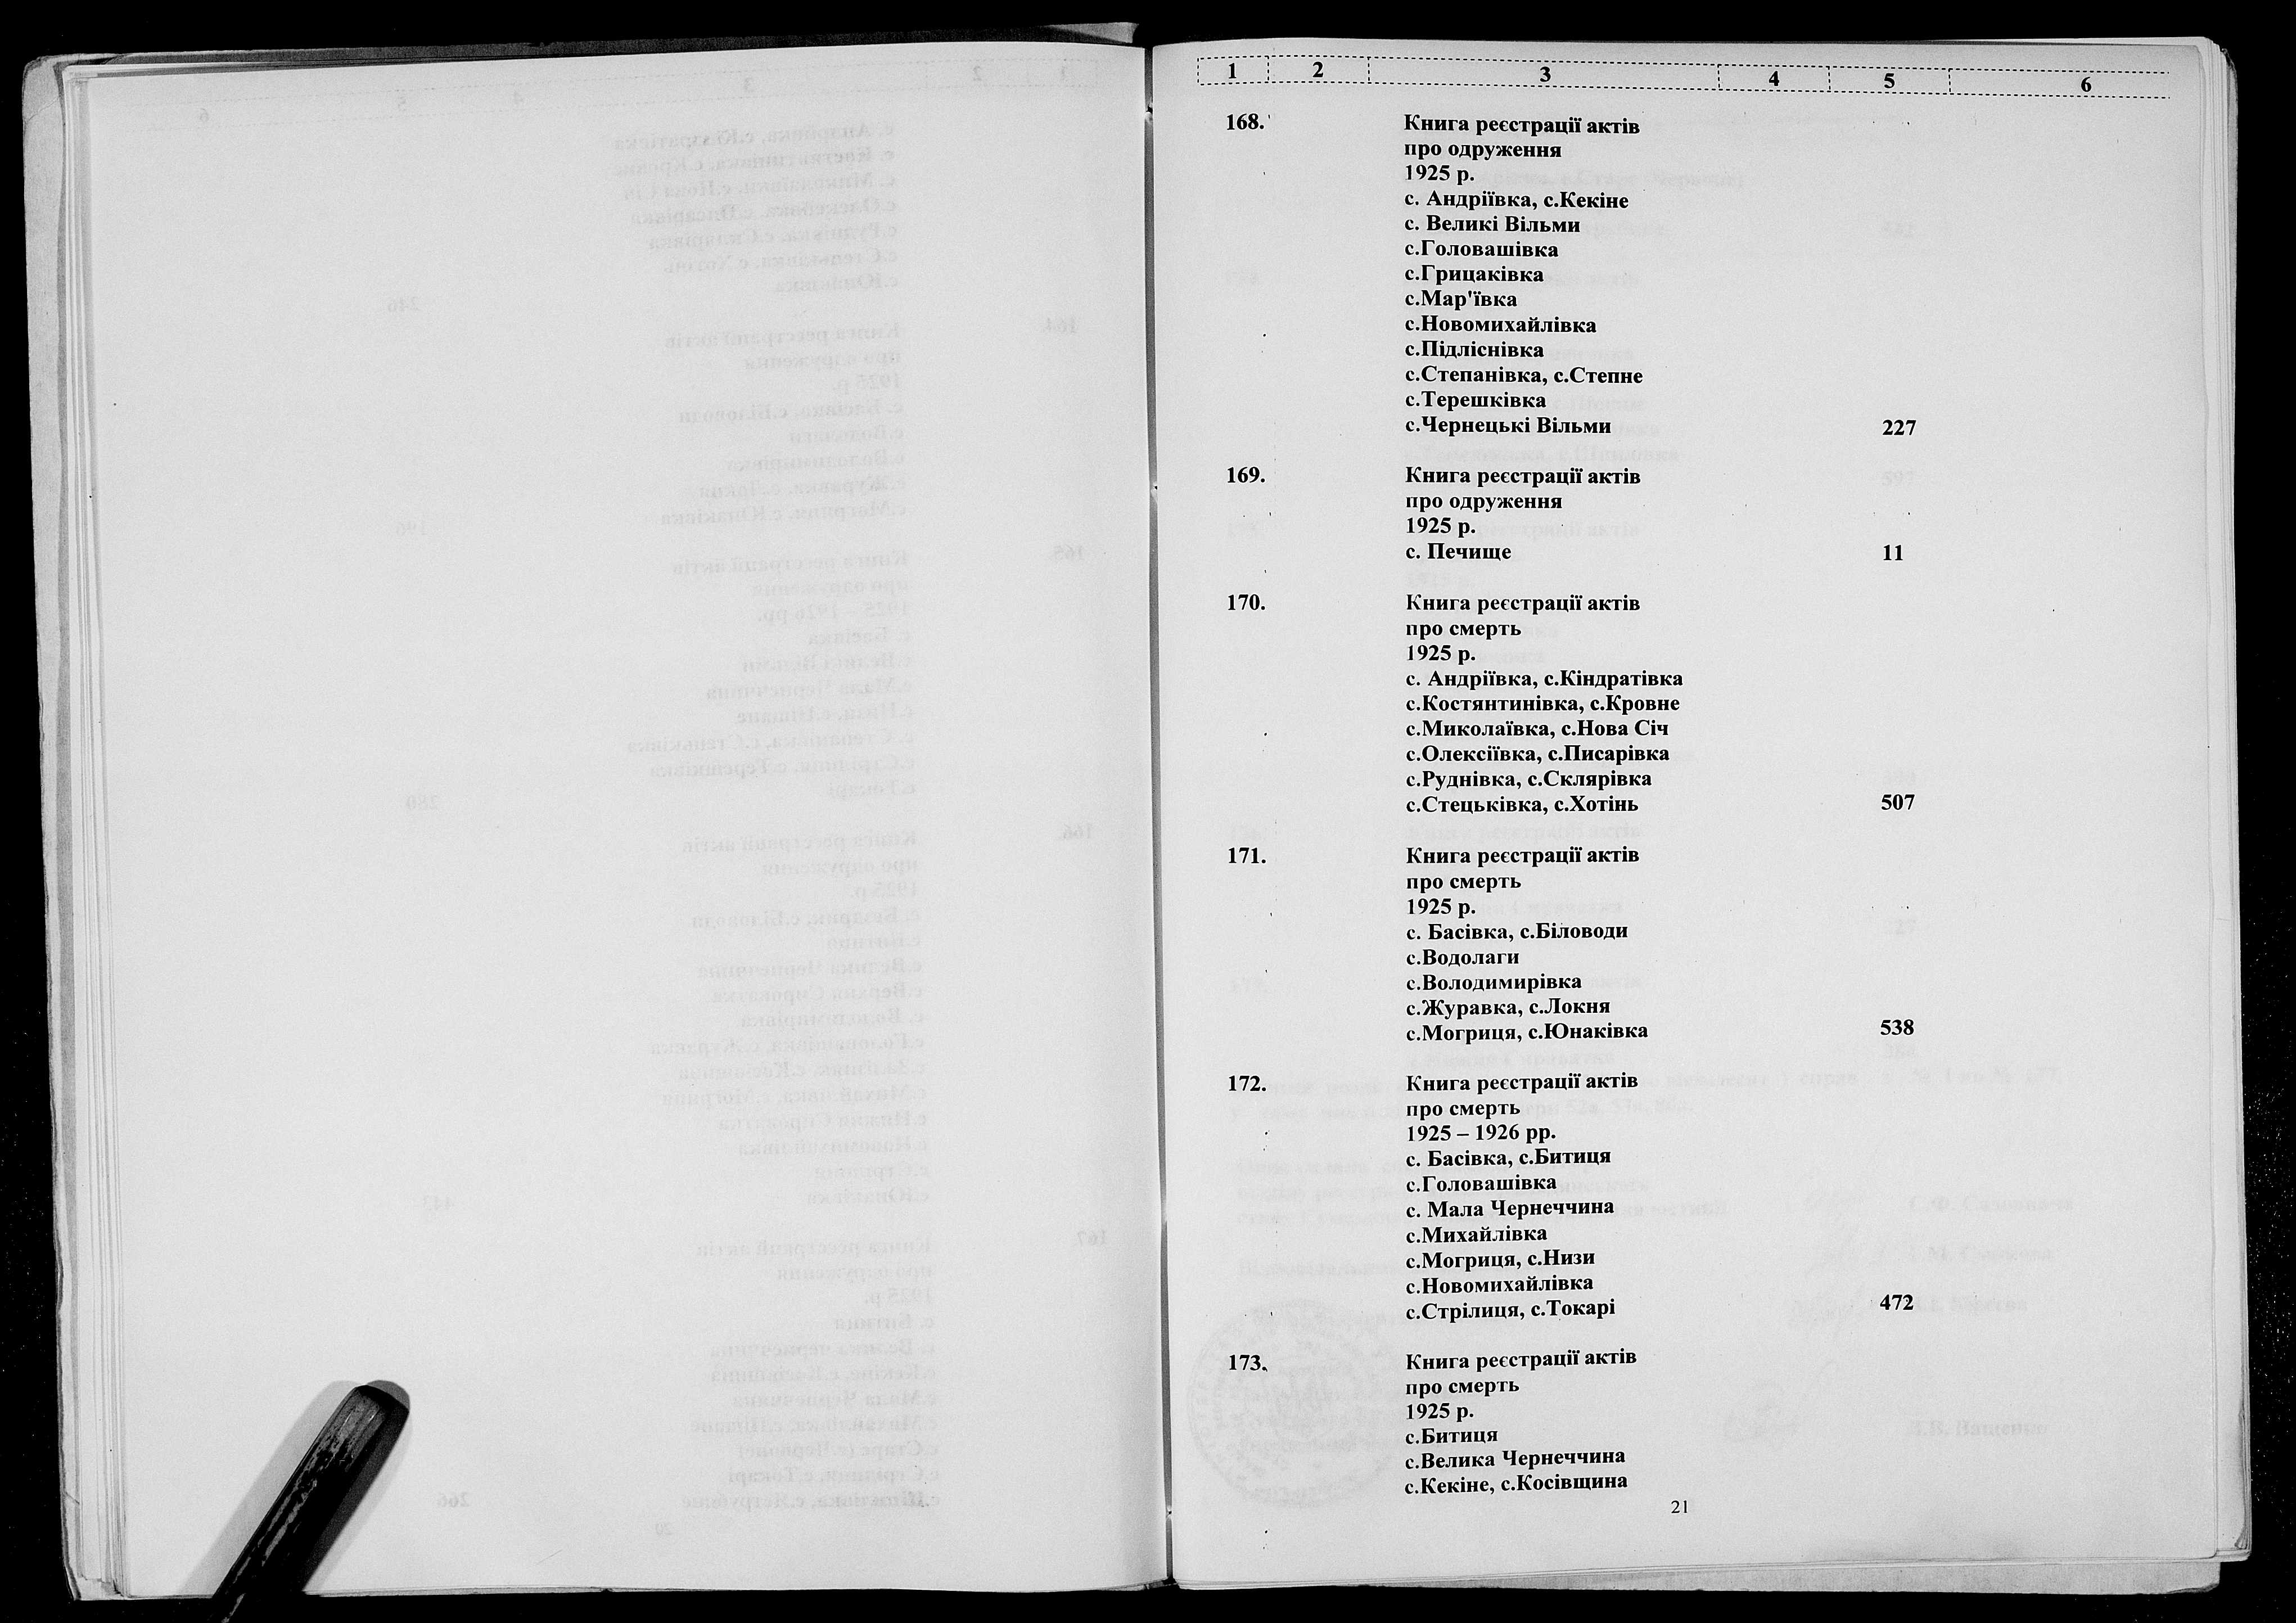 1 2 3 4 5 6
168. Книга реєстрації актів
про одруження
1925 р.
с. Андріївка, с.Кекіне
с. Великі Вільми
с.Головашівка
с.Грицаківка
с.Мар'ївка
с.Новомихайлівка
с.Підліснівка
с.Степанівка, с.Степне
с.Терешківка
с.Чернецькі Вільми 227
169. Книга реєстрації актів
про одруження
1925 р.
с. Печище 11
170. Книга реєстрації актів
про смерть
1925 р.
с. Андріївка, с.Кіндратівка
с.Костянтинівка, с.Кровне
с.Миколаївка, с.Нова Січ
с.Олексіївка, с.Писарівка
с.Руднівка, с.Склярівка
с.Стецьківка, с.Хотінь 507
171. Книга реєстрації актів
про смерть
1925 р.
с. Басівка, с.Біловоди
с.Водолаги
с.Володимирівка
с.Журавка, с.Локня
с.Могриця, с.Юнаківка 538
172. Книга реєстрації актів
про смерть
1925 – 1926 рр.
с. Басівка, с.Битиця
с.Головашівка
с. Мала Чернеччина
с.Михайлівка
с.Могриця, с.Низи
с.Новомихайлівка
с.Стрілиця, с.Токарі 472
173. Книга реєстрації актів
про смерть
1925 р.
с.Битиця
с.Велика Чернеччина
с.Кекіне, с.Косівщина
21